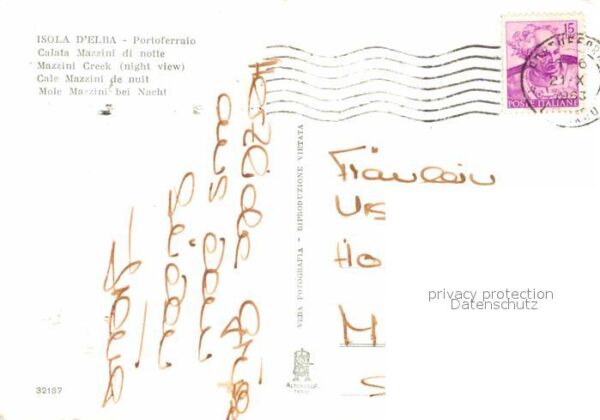 ISOLA D'ELBA - Portoferraio
Calata Mazzini di notte
Mazzini Creek (night view)
Cale Mazzini de nuit
Mole Mazzini bei Nacht
15
POSTE ITALIANE
21 X
1963
Herzliche Grüße
aus dem
Süden
VERA FOTOGRAFIA - RIPRODUZIONE VIETATA
Fräulein
privacy protection
Datenschutz
32187